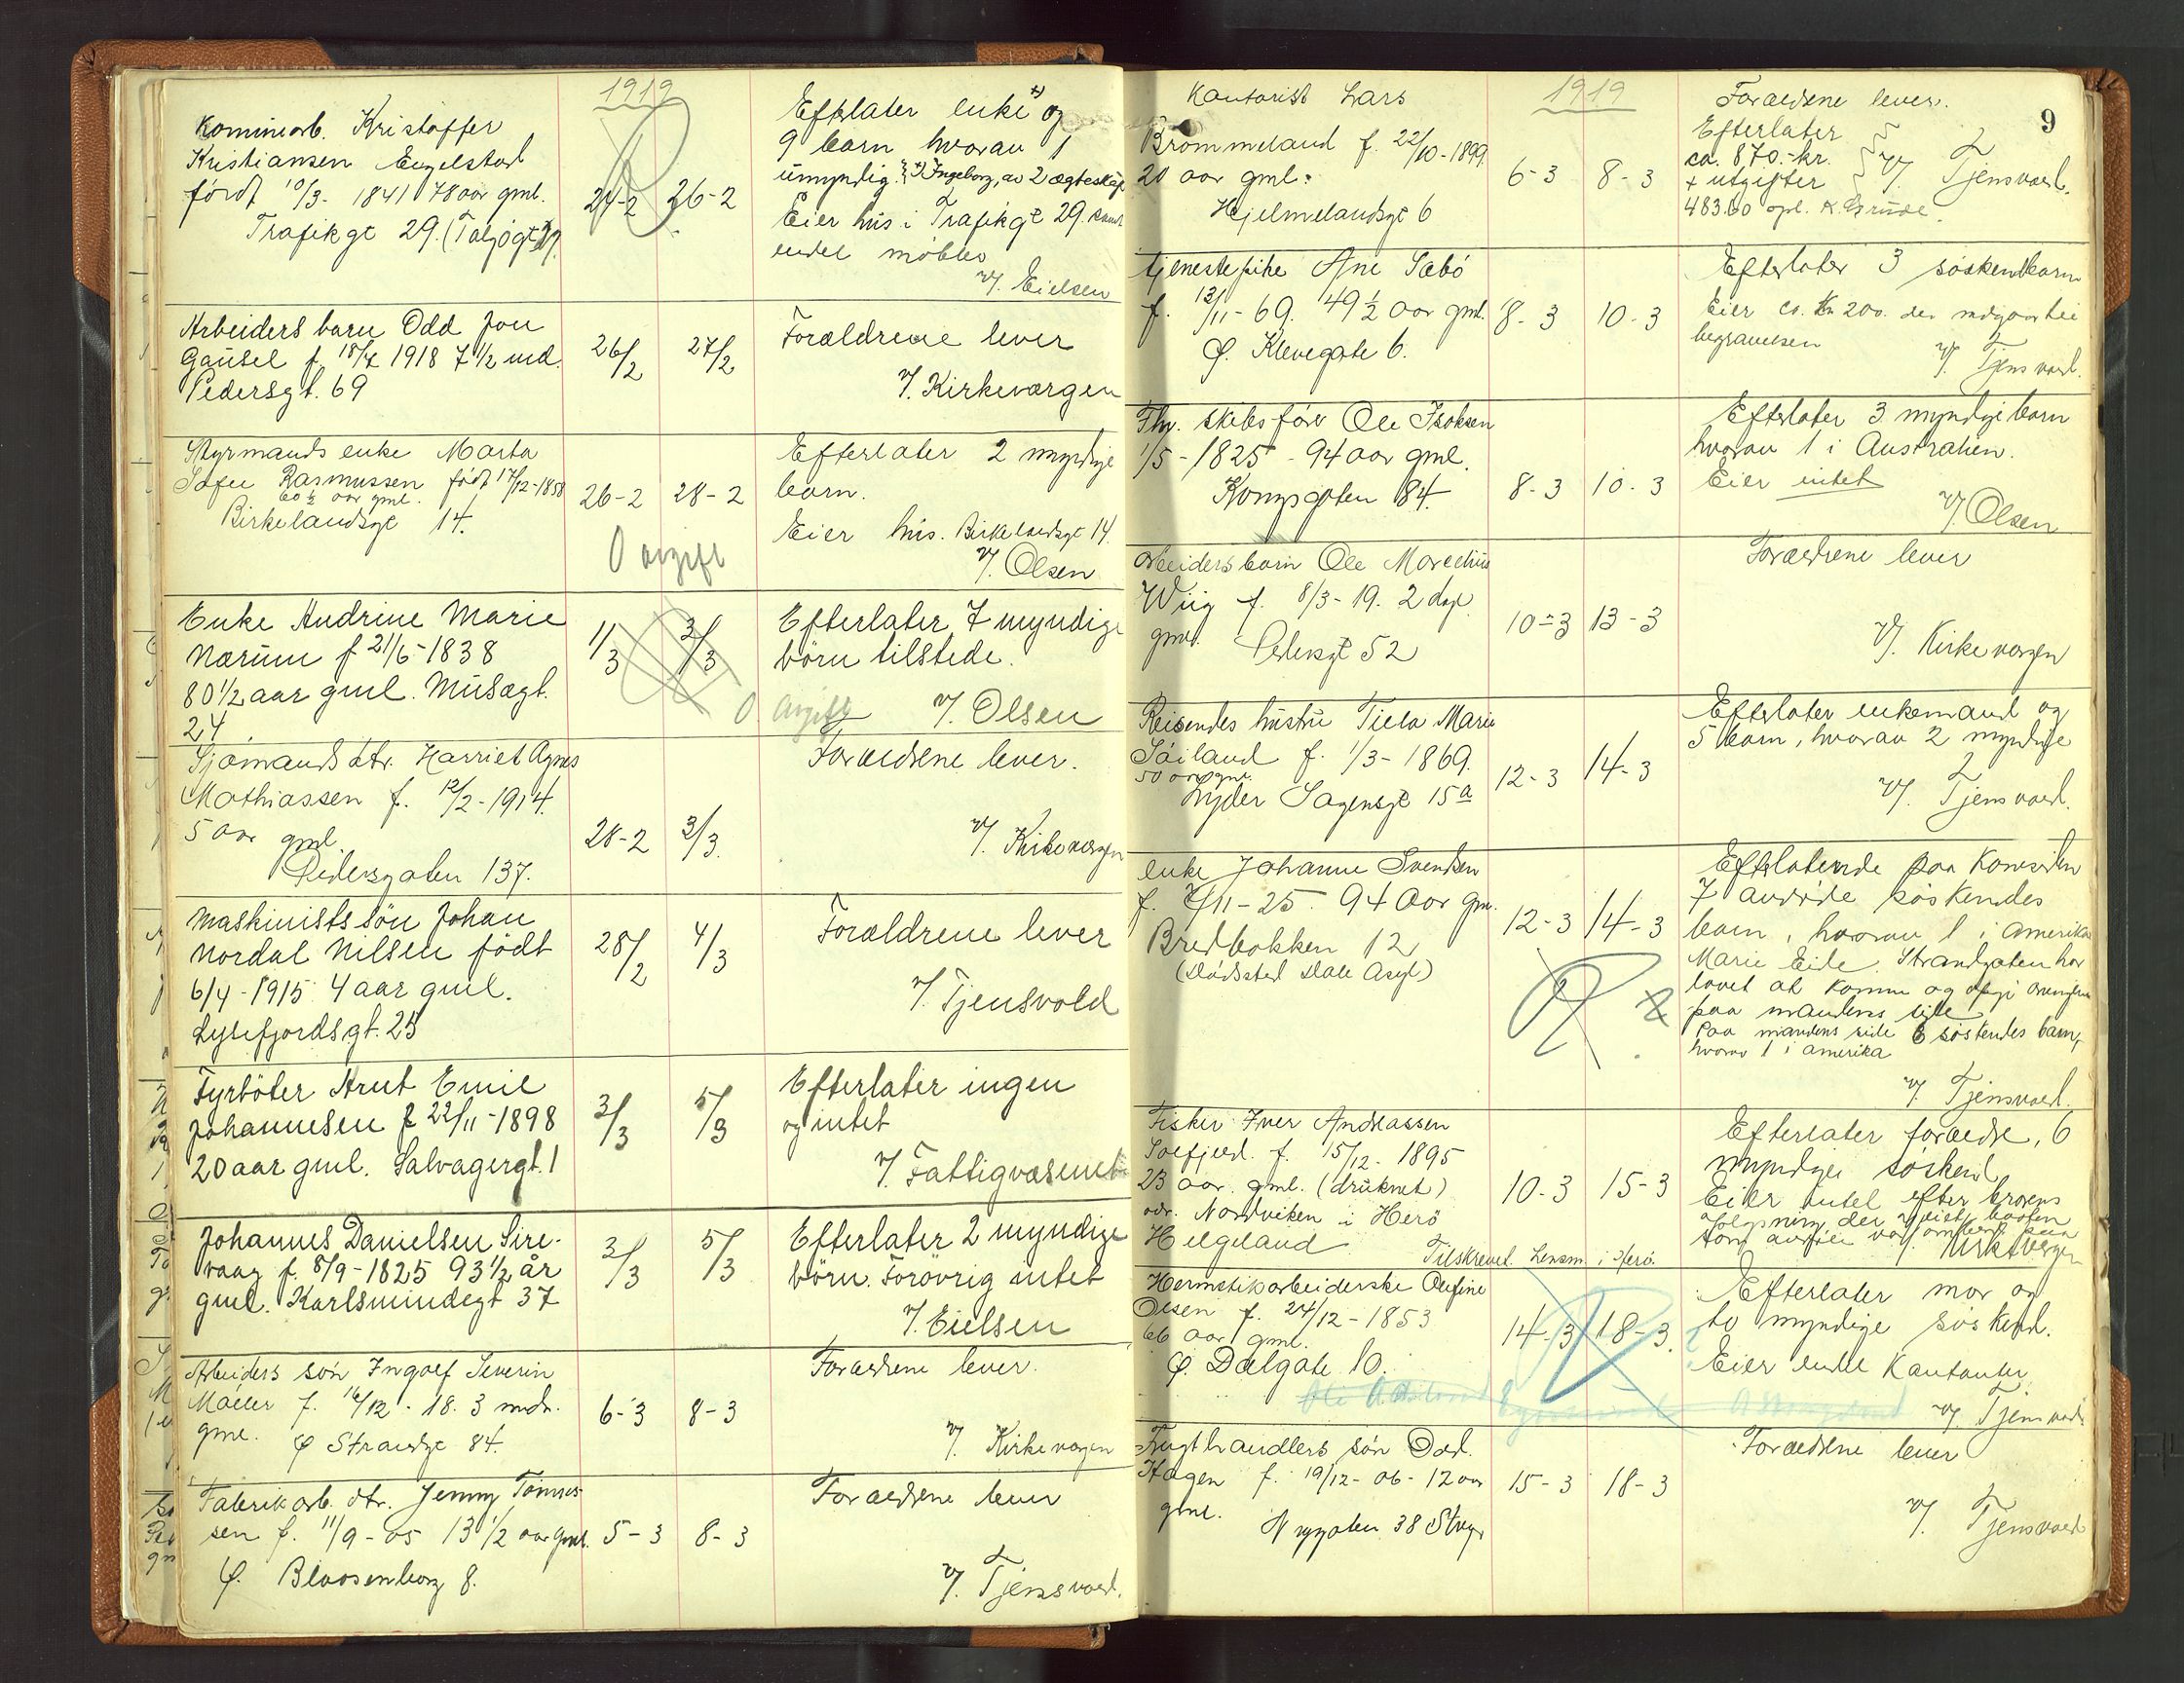 1919
Komminearb. Kristoffer
Kristiansen Engelstad
født 10/3- 1841 78 aar gml.
Trafikgt 29. (Taljøgt
24-2 26-2
Efterlater enke +) og
9 barn hvorav 1
umyndig. +) Ingeborg, av 2 ægteskap
Eier hus i Trafikgt 29. samt
endel møbler
v/. Eielsen
Arbeiders barn Odd Jon
Gausel f. 18/7 1918 7 1/2 md.
Pedersgt. 69
26/2 27/2
Forældrene lever
v/. Kirkevergen
Styrmands enke Marta
Sofie Rasmussen født 17/12-1858
60 1/2 aar gml.
Birkelandsgt 14.
26-2 28-2
0 avgift
Efterlater 2 myndige
barn.
Eier hus. Birkelandsgt 14.
v/. Olsen
Enke Andrine Marie
Nærum f 21/6-1838
80 1/2 aar gml. Musægt.
24
1/3 3/3
0 Avgift
Efterlater 7 myndige
børn tilstede.
v/. Olsen
Sjømands dtr. Harriet Agnes
Mathiassen f. 12/2-1914.
5 aar gml.
Pedersgaten 137.
28-2 3/3.
Forældrene lever.
v/. Kirkevergen
Maskinists søn Johan
Nordal Nilsen født
6/4-1915 4 aar gml.
Lysefjordsgt. 25
28/2 4/3
Forældrene lever
v/. Tjensvold
Fyrbøter Arnt Emil
Johannesen f 22/11-1898
20 aar gml. Salvagergt. 1
3/3 5/3
Efterlater ingen
og intet
v/. Fattigvæsenet
Johannes Danielsen Sire-
vaag f. 8/9-1825 93 1/2 år
gml. Karlsmindegt 37
3/3 5/3
Efterlater 2 myndige
børn. Forøvrig intet
v/. Eielsen
Arbeiders søn Ingolf Severin
Møller f. 16/12 - 18. 3 mdr.
gml. Ø Strandgt 84.
6-3 8-3
Forældrene lever.
v/. Kirkevergen
Fabrikarb. dtr. Jenny Tønnes-
sen f. 11/9-05 13 1/2 aar gml.
Ø. Blaasenborg 8.
5-3 8-3
Forældrene lever
v/. Tjensvold.
9
1919
Kontorist Lars
Brømmeland f. 22/10-1899
20 aar gml.
Hjelmelandsgt 6
6-3 8-3
Forældrene lever.
Efterlater
ca. 870.-kr.
+ utgifter
483.60 opl. K. Grude.
v/. Tjensvold.
Tjenestepike Ane Sæbø
f. 13/11-69. 49 1/2 aar gml.
Ø. Klevegate 6.
8-3 10-3
Efterlater 3 søskenbarn
Eier ca. Kr 200. der medgaar til
begravelsen
v/. Tjensvold.
Fhv. skibsfører Ole Isaksen
1/5-1825 - 94 aar gml.
Kongsgaten 84.
8-3 10-3
Efterlater 3 myndige barn
hvorav 1 i Australien.
Eier intet
v/. Olsen
Arbeidersbarn Ole Marelius
Wiig f. 8/3-19. 2 dage
gml. Pedersgt 52
10-3 13-3
Forældrene lever
v/. Kirkevergen
Reisendes hustru Tiela Marie
Søiland f. 1/3-1869.
50 aar gml.
Lyder Sagensgt 15a
12-3 14-3
Efterlater enkemand og
5 barn, hvorav 2 myndige
v/. Tjensvold.
Enke Johanne Svendsen
f. 2/11-25. 94 aar gml.
Bredbakken 12
(Dødssted Dale Asyl)
12-3 14-3
Efterlatende paa Konesiden
7 avdøde søskendes
barn, hvorav 1 i Amerika
Marie Eide. Strandgaten har
lovet at komme og opgi arvingerne
paa mandens side.
Paa mandens side 6 søskendes barn,
hvorav 1 i amerika
v/. Tjensvold.
Fisker Iver Andreassen
Solfjeld. f. 15/12- 1895
23 aar. gml. (druknet)
adr. Nordviken i Herø
Helgeland
Tilskrevet Lensm. i Herø.
10-3 15-3
Efterlater forældre, 6
myndige søskend
Eier intet efter brorens
v/. Kirkevergen
Hermetikarbeiderske Olefine
Olsen f. 24/12-1853
66 aar gml.
Ø Dalgate 10.
14-3 18-3.
Efterlater mor og
to myndige søskend.
Eier endel Kontanter
v/. Tjensvold.
Frugthandlers søn Odd.
Hagen f. 19/12-06- 12 aar
gml.
Nygaten 38 Stvgr
15-3 18-3
Forældrene lever
v/. Tjensvold